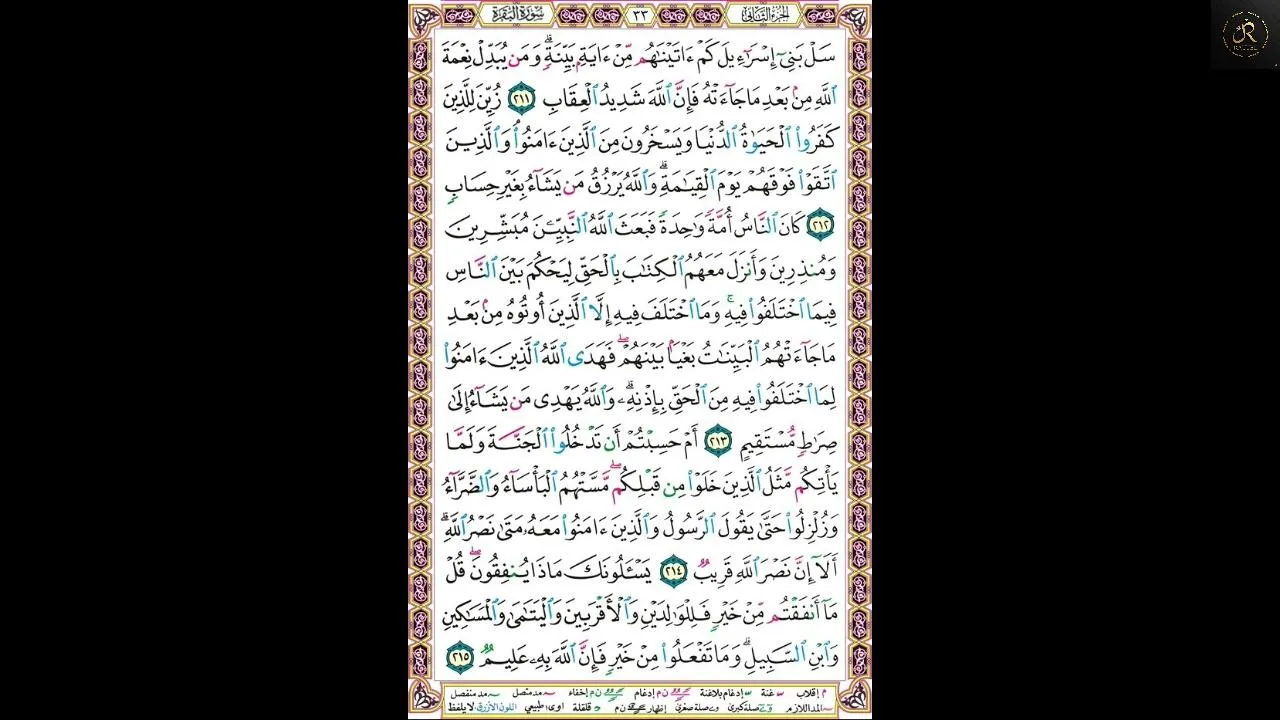 الجزء الثاني ٣٣ سورة البقرة
سَلْ بَنِىٓ إِسْرَٰٓءِيلَ كَمْ ءَاتَيْنَٰهُم مِّنْ ءَايَةٍۭ بَيِّنَةٍۗ وَمَن يُبَدِّلْ نِعْمَةَ
ٱللَّهِ مِنۢ بَعْدِ مَا جَآءَتْهُ فَإِنَّ ٱللَّهَ شَدِيدُ ٱلْعِقَابِ ٢١١ زُيِّنَ لِلَّذِينَ
كَفَرُوا۟ ٱلْحَيَوٰةُ ٱلدُّنْيَا وَيَسْخَرُونَ مِنَ ٱلَّذِينَ ءَامَنُوا۟ۘ وَٱلَّذِينَ
ٱتَّقَوْا۟ فَوْقَهُمْ يَوْمَ ٱلْقِيَٰمَةِۗ وَٱللَّهُ يَرْزُقُ مَن يَشَآءُ بِغَيْرِ حِسَابٍ
٢١٢ كَانَ ٱلنَّاسُ أُمَّةً وَٰحِدَةً فَبَعَثَ ٱللَّهُ ٱلنَّبِيِّـۧنَ مُبَشِّرِينَ
وَمُنذِرِينَ وَأَنزَلَ مَعَهُمُ ٱلْكِتَٰبَ بِٱلْحَقِّ لِيَحْكُمَ بَيْنَ ٱلنَّاسِ
فِيمَا ٱخْتَلَفُوا۟ فِيهِۚ وَمَا ٱخْتَلَفَ فِيهِ إِلَّا ٱلَّذِينَ أُوتُوهُ مِنۢ بَعْدِ
مَا جَآءَتْهُمُ ٱلْبَيِّنَٰتُ بَغْيًۢا بَيْنَهُمْۖ فَهَدَى ٱللَّهُ ٱلَّذِينَ ءَامَنُوا۟
لِمَا ٱخْتَلَفُوا۟ فِيهِ مِنَ ٱلْحَقِّ بِإِذْنِهِۦۗ وَٱللَّهُ يَهْدِى مَن يَشَآءُ إِلَىٰ
صِرَٰطٍ مُّسْتَقِيمٍ ٢١٣ أَمْ حَسِبْتُمْ أَن تَدْخُلُوا۟ ٱلْجَنَّةَ وَلَمَّا
يَأْتِكُم مَّثَلُ ٱلَّذِينَ خَلَوْا۟ مِن قَبْلِكُمۖ مَّسَّتْهُمُ ٱلْبَأْسَآءُ وَٱلضَّرَّآءُ
وَزُلْزِلُوا۟ حَتَّىٰ يَقُولَ ٱلرَّسُولُ وَٱلَّذِينَ ءَامَنُوا۟ مَعَهُۥ مَتَىٰ نَصْرُ ٱللَّهِۗ
أَلَآ إِنَّ نَصْرَ ٱللَّهِ قَرِيبٌ ٢١٤ يَسْـَٔلُونَكَ مَاذَا يُنفِقُونَۖ قُلْ
مَآ أَنفَقْتُم مِّنْ خَيْرٍ فَلِلْوَٰلِدَيْنِ وَٱلْأَقْرَبِينَ وَٱلْيَتَٰمَىٰ وَٱلْمَسَٰكِينِ
وَٱبْنِ ٱلسَّبِيلِۗ وَمَا تَفْعَلُوا۟ مِنْ خَيْرٍ فَإِنَّ ٱللَّهَ بِهِۦ عَلِيمٌ ٢١٥
م إقلاب غنة إدغام بلاغنة ن م إدغام ن م إخفاء مد متصل مد منفصل
المد اللازم صلة كبرى صلة صغرى إظهار ن م قلقلة اوى طبيعي اللون الأزرق لا يلفظ
R